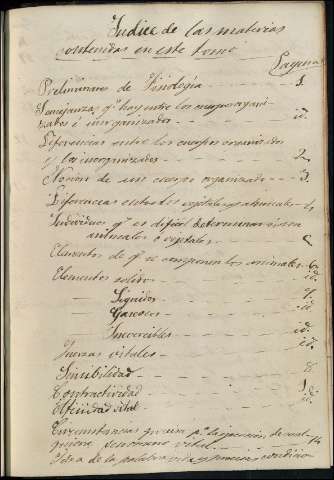 Indice de las materias
contenidas en este tomo
Paginas
Preliminares de Fisiología - - - 1.
Semejanzas q.e hay entre los cuerpos organi
zados é inorganizados - - - id.
Diferencias entre los cuerpos organizados
y los inorganizados - - - 2.
Nocion de un cuerpo organizado - - 3.
Diferencias entre los vegetales y animales - 4
Individuos q.e es dificil determinar si son
animales o vejetales - - -
Elementos de q.e se componen los animales - 6
Elementos solidos - - - id.
- Liquidos - - - 7.
- Gaseosos - - - id
- Incoercibles - - - id.
Fuerzas vitales - - - id.
Sensibilidad - - - 8.
Contractilidad - - -
Afinidad vital - - - id
Circunstancias precisas p.a la ejecucion de cual
quiera fenomeno vital - - - 14
Idea de la palabra vida y primera condicion